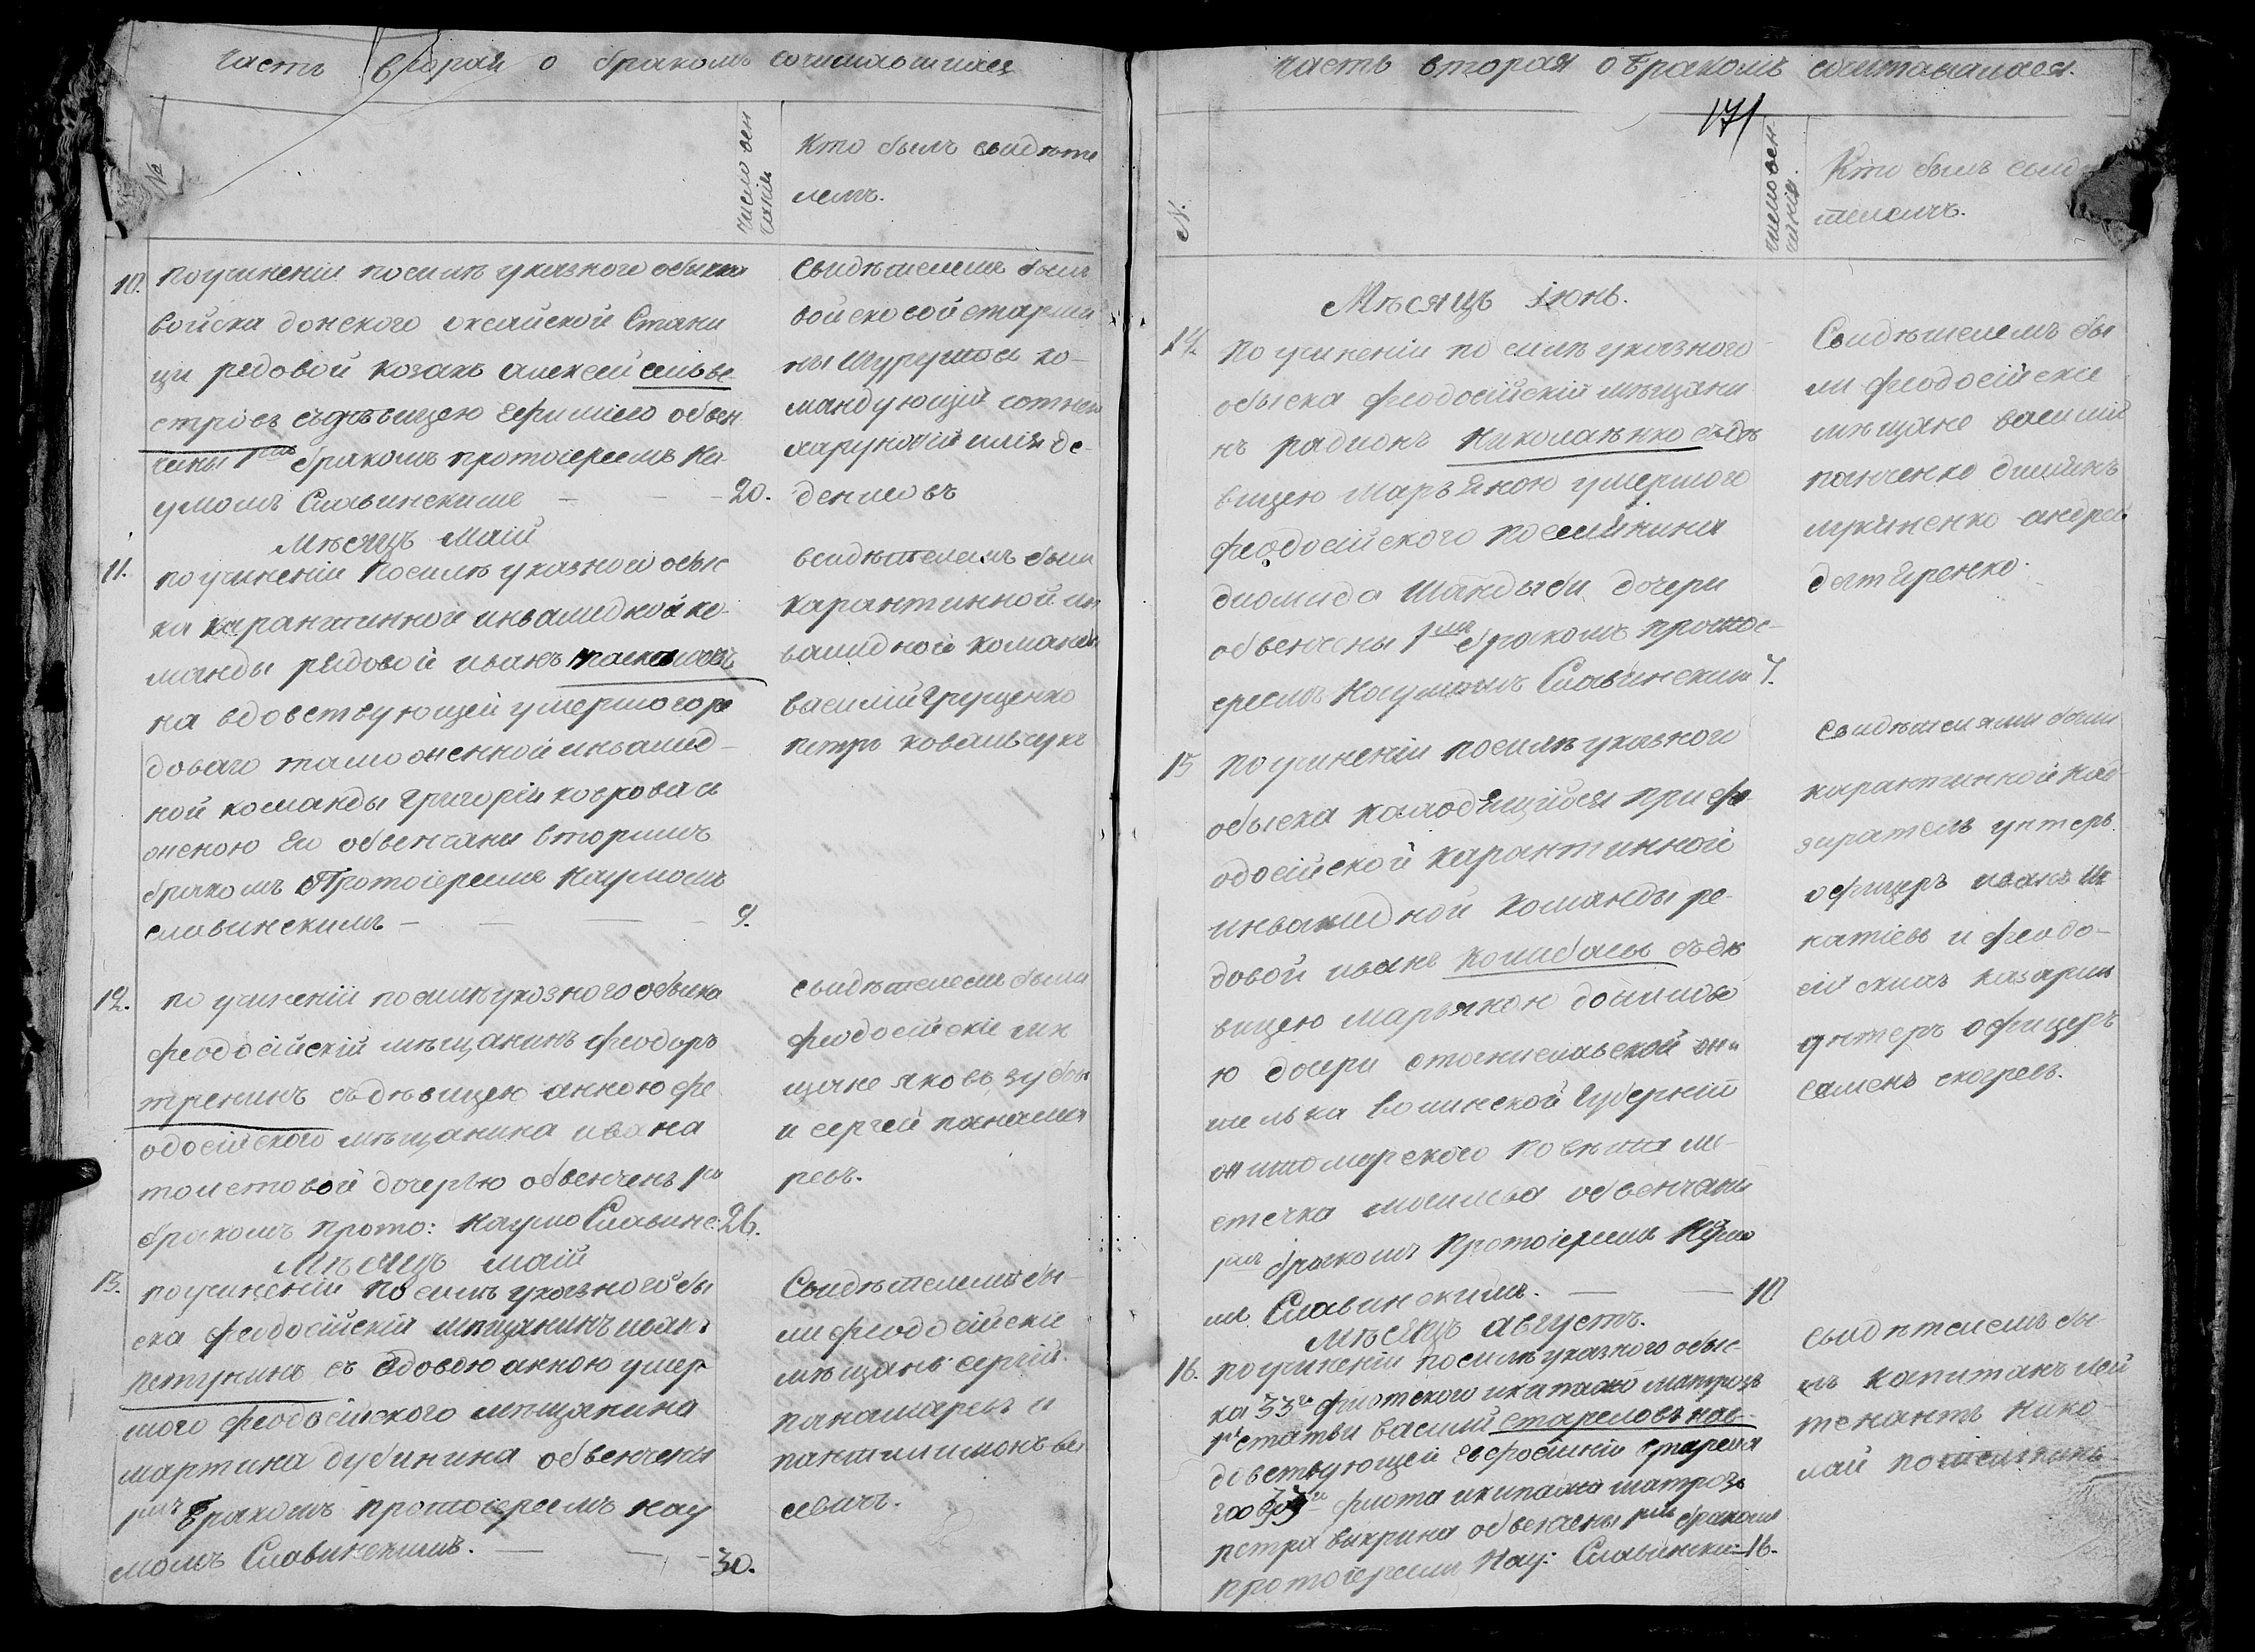 часть вторая о бракомъ сочитавшихся
№
число вен
чанія
Кто былъ свидѣте
лемъ.
10. По учиненіи посилѣ указного обыска
войска донского оксайской Стани
ци редовой козакъ алексей сильве-
стровъ съдѣвицею Ефиміею обвен
чаны 1мъ бракомъ протоіереемъ На-
умомъ Славинскимъ — 20.
Свидѣтелемъ былъ
войсковой старши
ны
мандующій сотнею
денисовъ
Мѣсяцъ Маій
11. по учиненіи Посилѣ указного обыс
ка карантинной инвалидной ко-
манды редовой иванъ
на вдовствующей умершого ре
доваго таможенной инвалид-
ной команды Григорія коврова съ
женою Ею обвенчаны вторымъ
бракомъ Протоіереемъ Наумомъ
славинскимъ — 9.
всидѣтелемъ были
карантинной ин
валидной команды
василій Грущенко
петръ ковальчукъ
12. по учиненіи посилѣ указного обыска
феодосійскій мѣщанинъ феодоръ
тренинъ съдѣвицею анною фе
одосійского мѣщанина ивана
толстовой дочерью обвенчены 1мъ
бракомъ прото: Наумо Славинс: 26.
свидѣтелемъ были
феодосійскіе мѣ
щане яковъ зубовъ
и сергей панама
ревъ.
Мѣсяцъ маій
13. по учиненіи посилѣ указного обы
ска феодосійскій мѣщанинъ иванъ
петунинъ съ вдовою анною умер
шого феодосійского мѣщанина
мартина дубинина обвенчены
1мъ Бракомъ протоіереемъ нау
момъ Славинскимъ. — 30.
Свидѣтелемъ бы-
ли феодосійскіе
мѣщанъ сергій
панамаревъ и
пантилимонъ ва
севичъ.
часть вторая о Бракомъ сочитавшихся.
171
№.
число вен-
чанія.
Кто былъ свидѣ
телемъ.
Мѣсяцъ Іюнь.
14. по учиненіи по силѣ указного
обыска феодосійскій мѣщани
нъ радионъ Николаенко съдѣ
вицею марьяною умершого
феодосійского поселянина
диомида Шакдыби дочери
обвенчены 1мъ бракомъ протое-
ереемъ Наумомъ Славинским 7.
Свидѣтелемъ бы
ли феодосійскіе
мѣщане василій
панченко
лукяненко андрей
дегтяренко.
15 по учиненіи посилѣ указного
обыска находящійся при фе
одосійской карантинной
инвалидной команды ре-
довой иванъ колибасъ съдѣ
вицею марьяною
ю дочери станиславской жи
телька волинской Губерніи
житомирского повѣта ми-
стечка обвенчаны
1мъ бракомъ Протоіереемъ Наумо
мъ Славинскимъ. — 10
Свидѣтелями были
карантинной над
зиратель унтеръ
офицеръ иванъ Иг
натіевъ и феодо-
сій казарин
унтеръ офицеръ
семенъ
Мѣсяцъ августъ.
16. по учиненіи посилѣ указного обыс-
ка 33го флотского икипажа матрозъ
1й статьи василій стареловъ нав-
довствующей ефросиніи старела
го 33го флота икипажа матроза
петра вихрина обвенчены 1мъ бракомъ
протоіереемъ Нау: Славински: 16.
свидѣтелемъ бы
лъ капитанъ лей
тенантъ нико-
лай